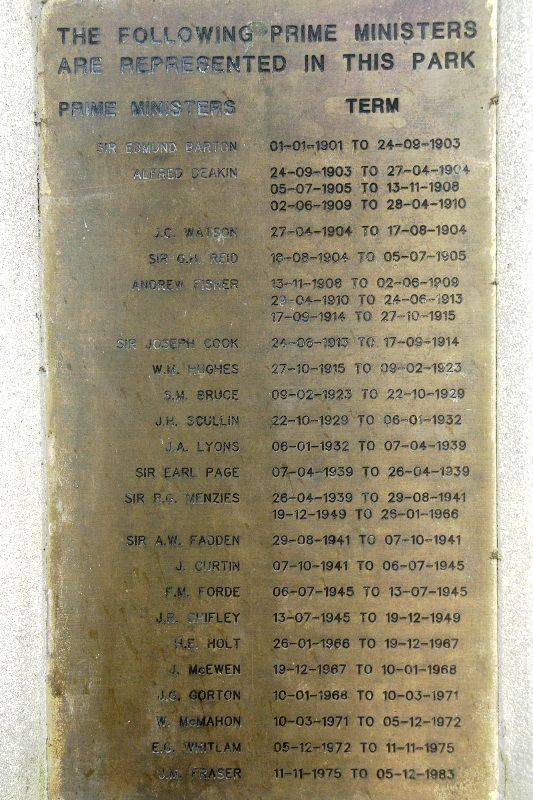 THE FOLLOWING PRIME MINISTERS
ARE REPRESENTED IN THIS PARK
PRIME MINISTERS TERM
SIR EDMUND BARTON 01-01-1901 TO 24-09-1903
ALFRED DEAKIN 24-09-1903 TO 27-04-1904
05-07-1905 TO 13-11-1908
02-06-1909 TO 28-04-1910
J.C. WATSON 27-04-1904 TO 17-08-1904
SIR G.H. REID 18-08-1904 TO 05-07-1905
ANDREW FISHER 13-11-1908 TO 02-06-1909
29-04-1910 TO 24-06-1913
17-09-1914 TO 27-10-1915
SIR JOSEPH COOK 24-06-1913 TO 17-09-1914
W.M. HUGHES 27-10-1915 TO 09-02-1923
S.M. BRUCE 09-02-1923 TO 22-10-1929
J.H. SCULLIN 22-10-1929 TO 06-01-1932
J.A. LYONS 06-01-1932 TO 07-04-1939
SIR EARL PAGE 07-04-1939 TO 26-04-1939
SIR R.G. MENZIES 26-04-1939 TO 29-08-1941
19-12-1949 TO 26-01-1966
SIR A.W. FADDEN 29-08-1941 TO 07-10-1941
J. CURTIN 07-10-1941 TO 06-07-1945
F.M. FORDE 06-07-1945 TO 13-07-1945
J.B. CHIFLEY 13-07-1945 TO 19-12-1949
H.E. HOLT 26-01-1966 TO 19-12-1967
J. McEWEN 19-12-1967 TO 10-01-1968
J.G. GORTON 10-01-1968 TO 10-03-1971
W. McMAHON 10-03-1971 TO 05-12-1972
E.G. WHITLAM 05-12-1972 TO 11-11-1975
J.M. FRASER 11-11-1975 TO 05-12-1983